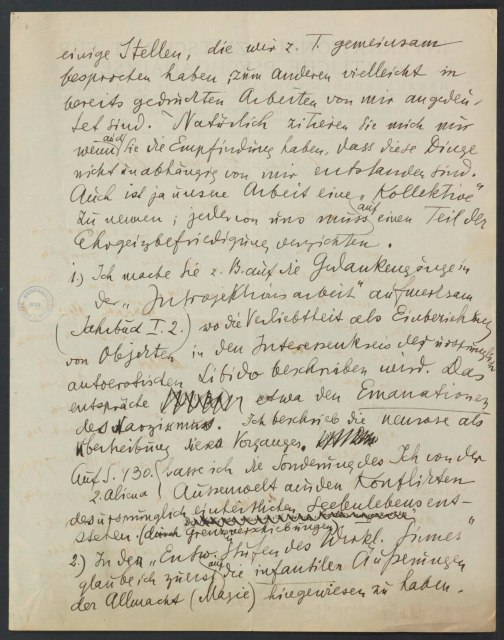 einige Stellen, die wir z. T. gemeinsam
besprochen haben, zum anderen vielleicht in
bereits gedruckten Arbeiten von mir angedeu-
tet sind. Natürlich zitieren Sie mich nur
wenn auch Sie die Empfindung haben, dass diese Dinge
nicht unabhängig von mir entstanden sind.
Auch ist ja unsere Arbeit eine „Kollektive"
zu nennen; jeder von uns muss auf einen Teil der
Ehrgeizbefriedigung verzichten.
1.) Ich mache Sie z. B. auf die Gedankengänge in
der „Introjektionsarbeit" aufmerksam
(Jahrbuch I. 2.) wo die Verliebtheit als Einbeziehung
von Objekten in den Interessenkreis der ursprünglich
autoerotischen Libido beschrieben wird. Das
entspräche etwa den Emanationen
des Narzismus. Ich beschrieb die Neurose als
Übertreibung dieses Vorganges.
Auf S. 430. lasse ich die Sonderung des Ich von der
2. Alinea Aussenwelt aus den Konflikten
des ursprünglich einheitlichen Seelenlebens ent-
stehen. (durch Grenzverschiebungen)
2.) In den „Entw. Stufen des Wirkl. Sinnes"
glaube ich zuerst auf die infantilen Äußerungen
der Allmacht (Magie) hingewiesen zu haben.